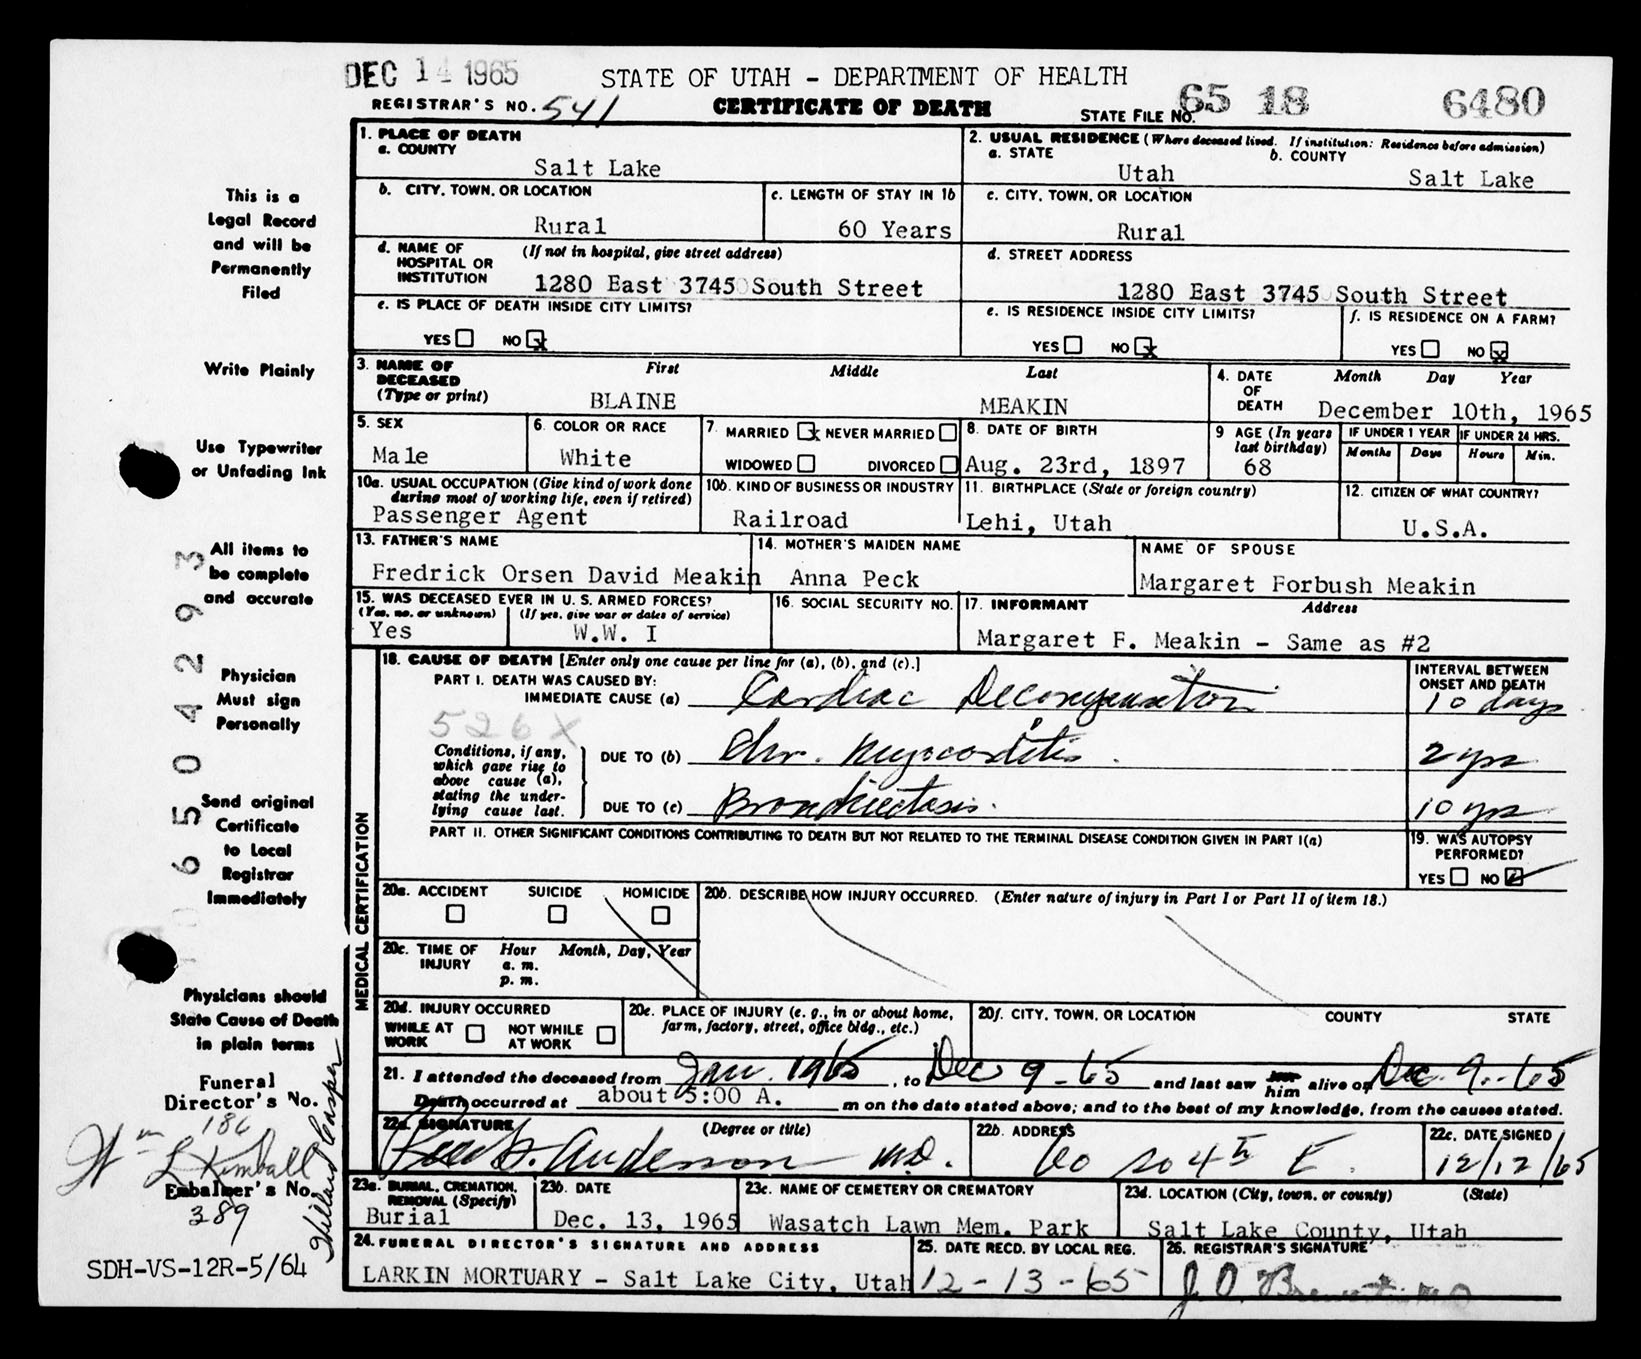 DEC 14 1965
STATE OF UTAH - DEPARTMENT OF HEALTH
REGISTRAR'S NO. 541
CERTIFICATE OF DEATH
STATE FILE NO. 65 18 6480
1. PLACE OF DEATH
a. COUNTY
Salt Lake
2. USUAL RESIDENCE (Where deceased lived. If institution: Residence before admission)
a. STATE
Utah
b. COUNTY
Salt Lake
b. CITY, TOWN, OR LOCATION
Rural
c. LENGTH OF STAY IN 1b
60 Years
c. CITY, TOWN, OR LOCATION
Rural
d. NAME OF HOSPITAL OR INSTITUTION (If not in hospital, give street address)
1280 East 3745 South Street
d. STREET ADDRESS
1280 East 3745 South Street
e. IS PLACE OF DEATH INSIDE CITY LIMITS?
YES NO x
e. IS RESIDENCE INSIDE CITY LIMITS?
YES NO x
f. IS RESIDENCE ON A FARM?
YES NO x
3. NAME OF DECEASED (Type or print)
First Middle Last
BLAINE MEAKIN
4. DATE OF DEATH
Month Day Year
December 10th, 1965
5. SEX
Male
6. COLOR OR RACE
White
7. MARRIED x NEVER MARRIED
WIDOWED DIVORCED
8. DATE OF BIRTH
Aug. 23rd, 1897
9 AGE (In years last birthday)
68
IF UNDER 1 YEAR
Months Days
IF UNDER 24 HRS.
Hours Min.
10a. USUAL OCCUPATION (Give kind of work done during most of working life, even if retired)
Passenger Agent
10b. KIND OF BUSINESS OR INDUSTRY
Railroad
11. BIRTHPLACE (State or foreign country)
Lehi, Utah
12. CITIZEN OF WHAT COUNTRY?
U.S.A.
13. FATHER'S NAME
Fredrick Orsen David Meakin
14. MOTHER'S MAIDEN NAME
Anna Peck
NAME OF SPOUSE
Margaret Forbush Meakin
15. WAS DECEASED EVER IN U. S. ARMED FORCES?
(Yes, no, or unknown) (If yes, give war or dates of service)
Yes W.W. I
16. SOCIAL SECURITY NO.
17. INFORMANT Address
Margaret F. Meakin - Same as #2
MEDICAL CERTIFICATION
18. CAUSE OF DEATH [Enter only one cause per line for (a), (b), and (c).]
INTERVAL BETWEEN ONSET AND DEATH
PART I. DEATH WAS CAUSED BY:
IMMEDIATE CAUSE (a) Cardiac Decompensation 10 days
526X
Conditions, if any, which gave rise to above cause (a), stating the underlying cause last.
DUE TO (b) Chr. Myocarditis. 2 yrs
DUE TO (c) Bronchiectasis. 10 yrs
PART II. OTHER SIGNIFICANT CONDITIONS CONTRIBUTING TO DEATH BUT NOT RELATED TO THE TERMINAL DISEASE CONDITION GIVEN IN PART I(a)
19. WAS AUTOPSY PERFORMED?
YES NO
20a. ACCIDENT SUICIDE HOMICIDE
20b. DESCRIBE HOW INJURY OCCURRED. (Enter nature of injury in Part I or Part II of item 18.)
20c. TIME OF INJURY
Hour Month, Day, Year
a. m.
p. m.
20d. INJURY OCCURRED
WHILE AT WORK NOT WHILE AT WORK
20e. PLACE OF INJURY (e. g., in or about home, farm, factory, street, office bldg., etc.)
20f. CITY, TOWN, OR LOCATION COUNTY STATE
21. I attended the deceased from Jan. 1965, to Dec 9-65 and last saw her him alive on Dec. 9-65
Death occurred at about 5:00 A. m on the date stated above; and to the best of my knowledge, from the causes stated.
22a. SIGNATURE (Degree or title)
Anderson M.D.
22b. ADDRESS
60 So 4th E.
22c. DATE SIGNED
12/12/65
23a. BURIAL, CREMATION, REMOVAL (Specify)
Burial
23b. DATE
Dec. 13, 1965
23c. NAME OF CEMETERY OR CREMATORY
Wasatch Lawn Mem. Park
23d. LOCATION (City, town, or county) (State)
Salt Lake County, Utah
24. FUNERAL DIRECTOR'S SIGNATURE AND ADDRESS
LARKIN MORTUARY - Salt Lake City, Utah
25. DATE RECD. BY LOCAL REG.
12-13-65
26. REGISTRAR'S SIGNATURE
J. O.
This is a
Legal Record
and will be
Permanently
Filed
Write Plainly
Use Typewriter
or Unfading Ink
All items to
be complete
and accurate
Physician
Must sign
Personally
Send original
Certificate
to Local
Registrar
Immediately
Physicians should
State Cause of Death
in plain terms
Funeral
Director's No.
186
Wm L Kimball
Embalmer's No.
389
SDH-VS-12R-5/64